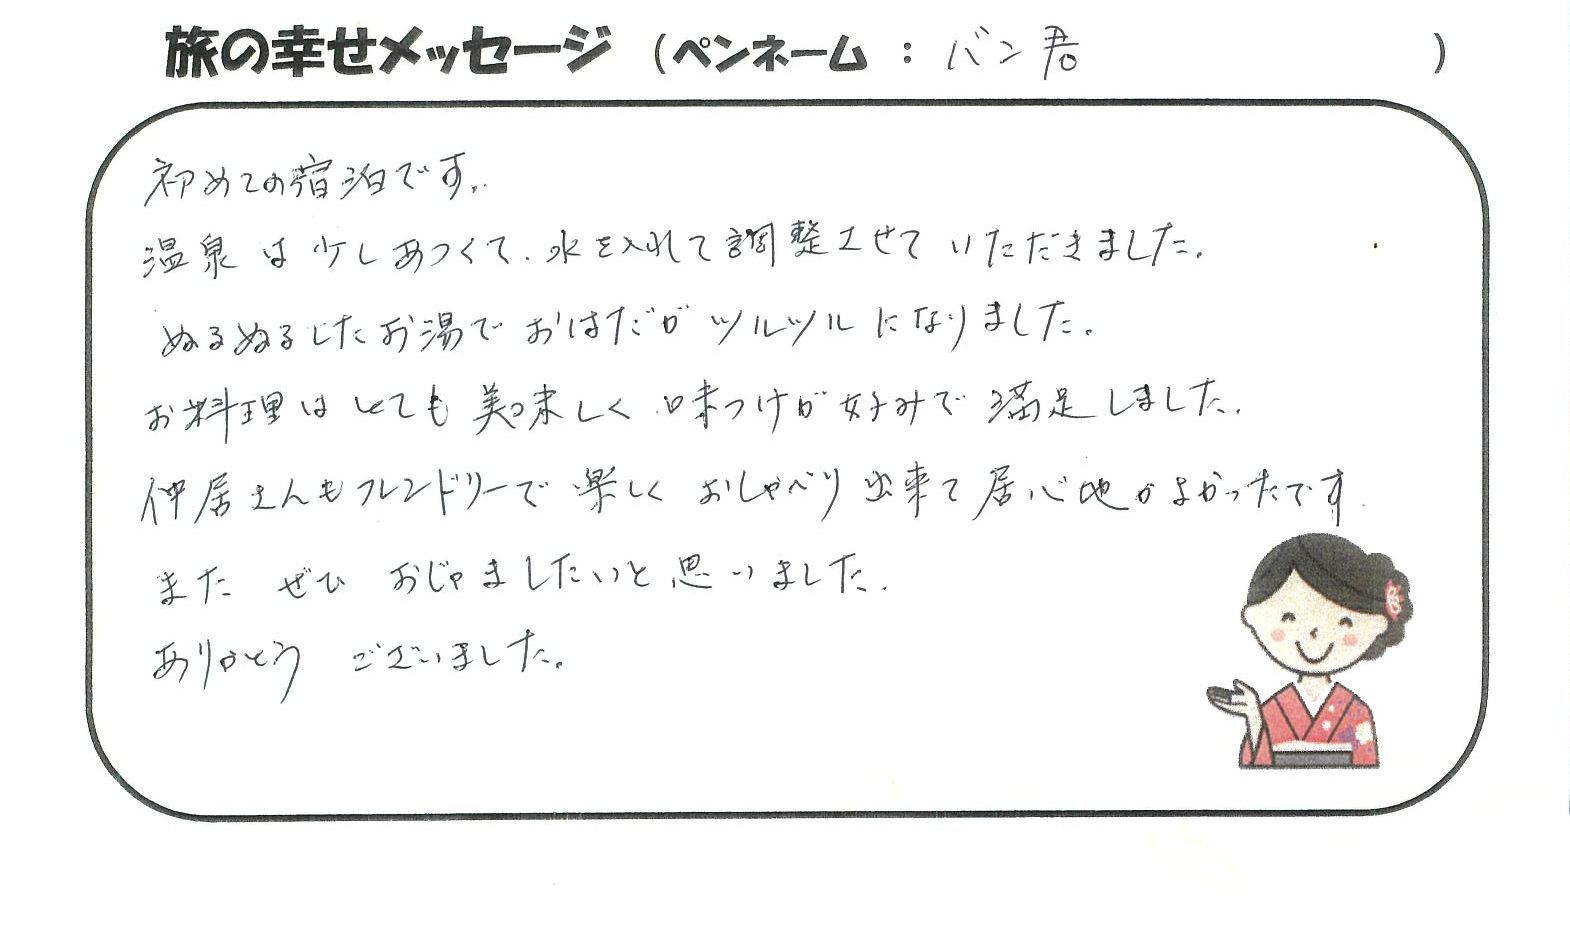 旅の幸せメッセージ (ペンネーム : バン君 )
初めての宿泊です。
温泉は少しあつくて、水を入れて調整させていただきました。
ぬるぬるしたお湯でおはだがツルツルになりました。
お料理はとても美味しく味つけが好みで満足しました。
仲居さんもフレンドリーで楽しくおしゃべり出来て居心地がよかったです
また ぜひ おじゃましたいと思いました。
ありがとう ございました。